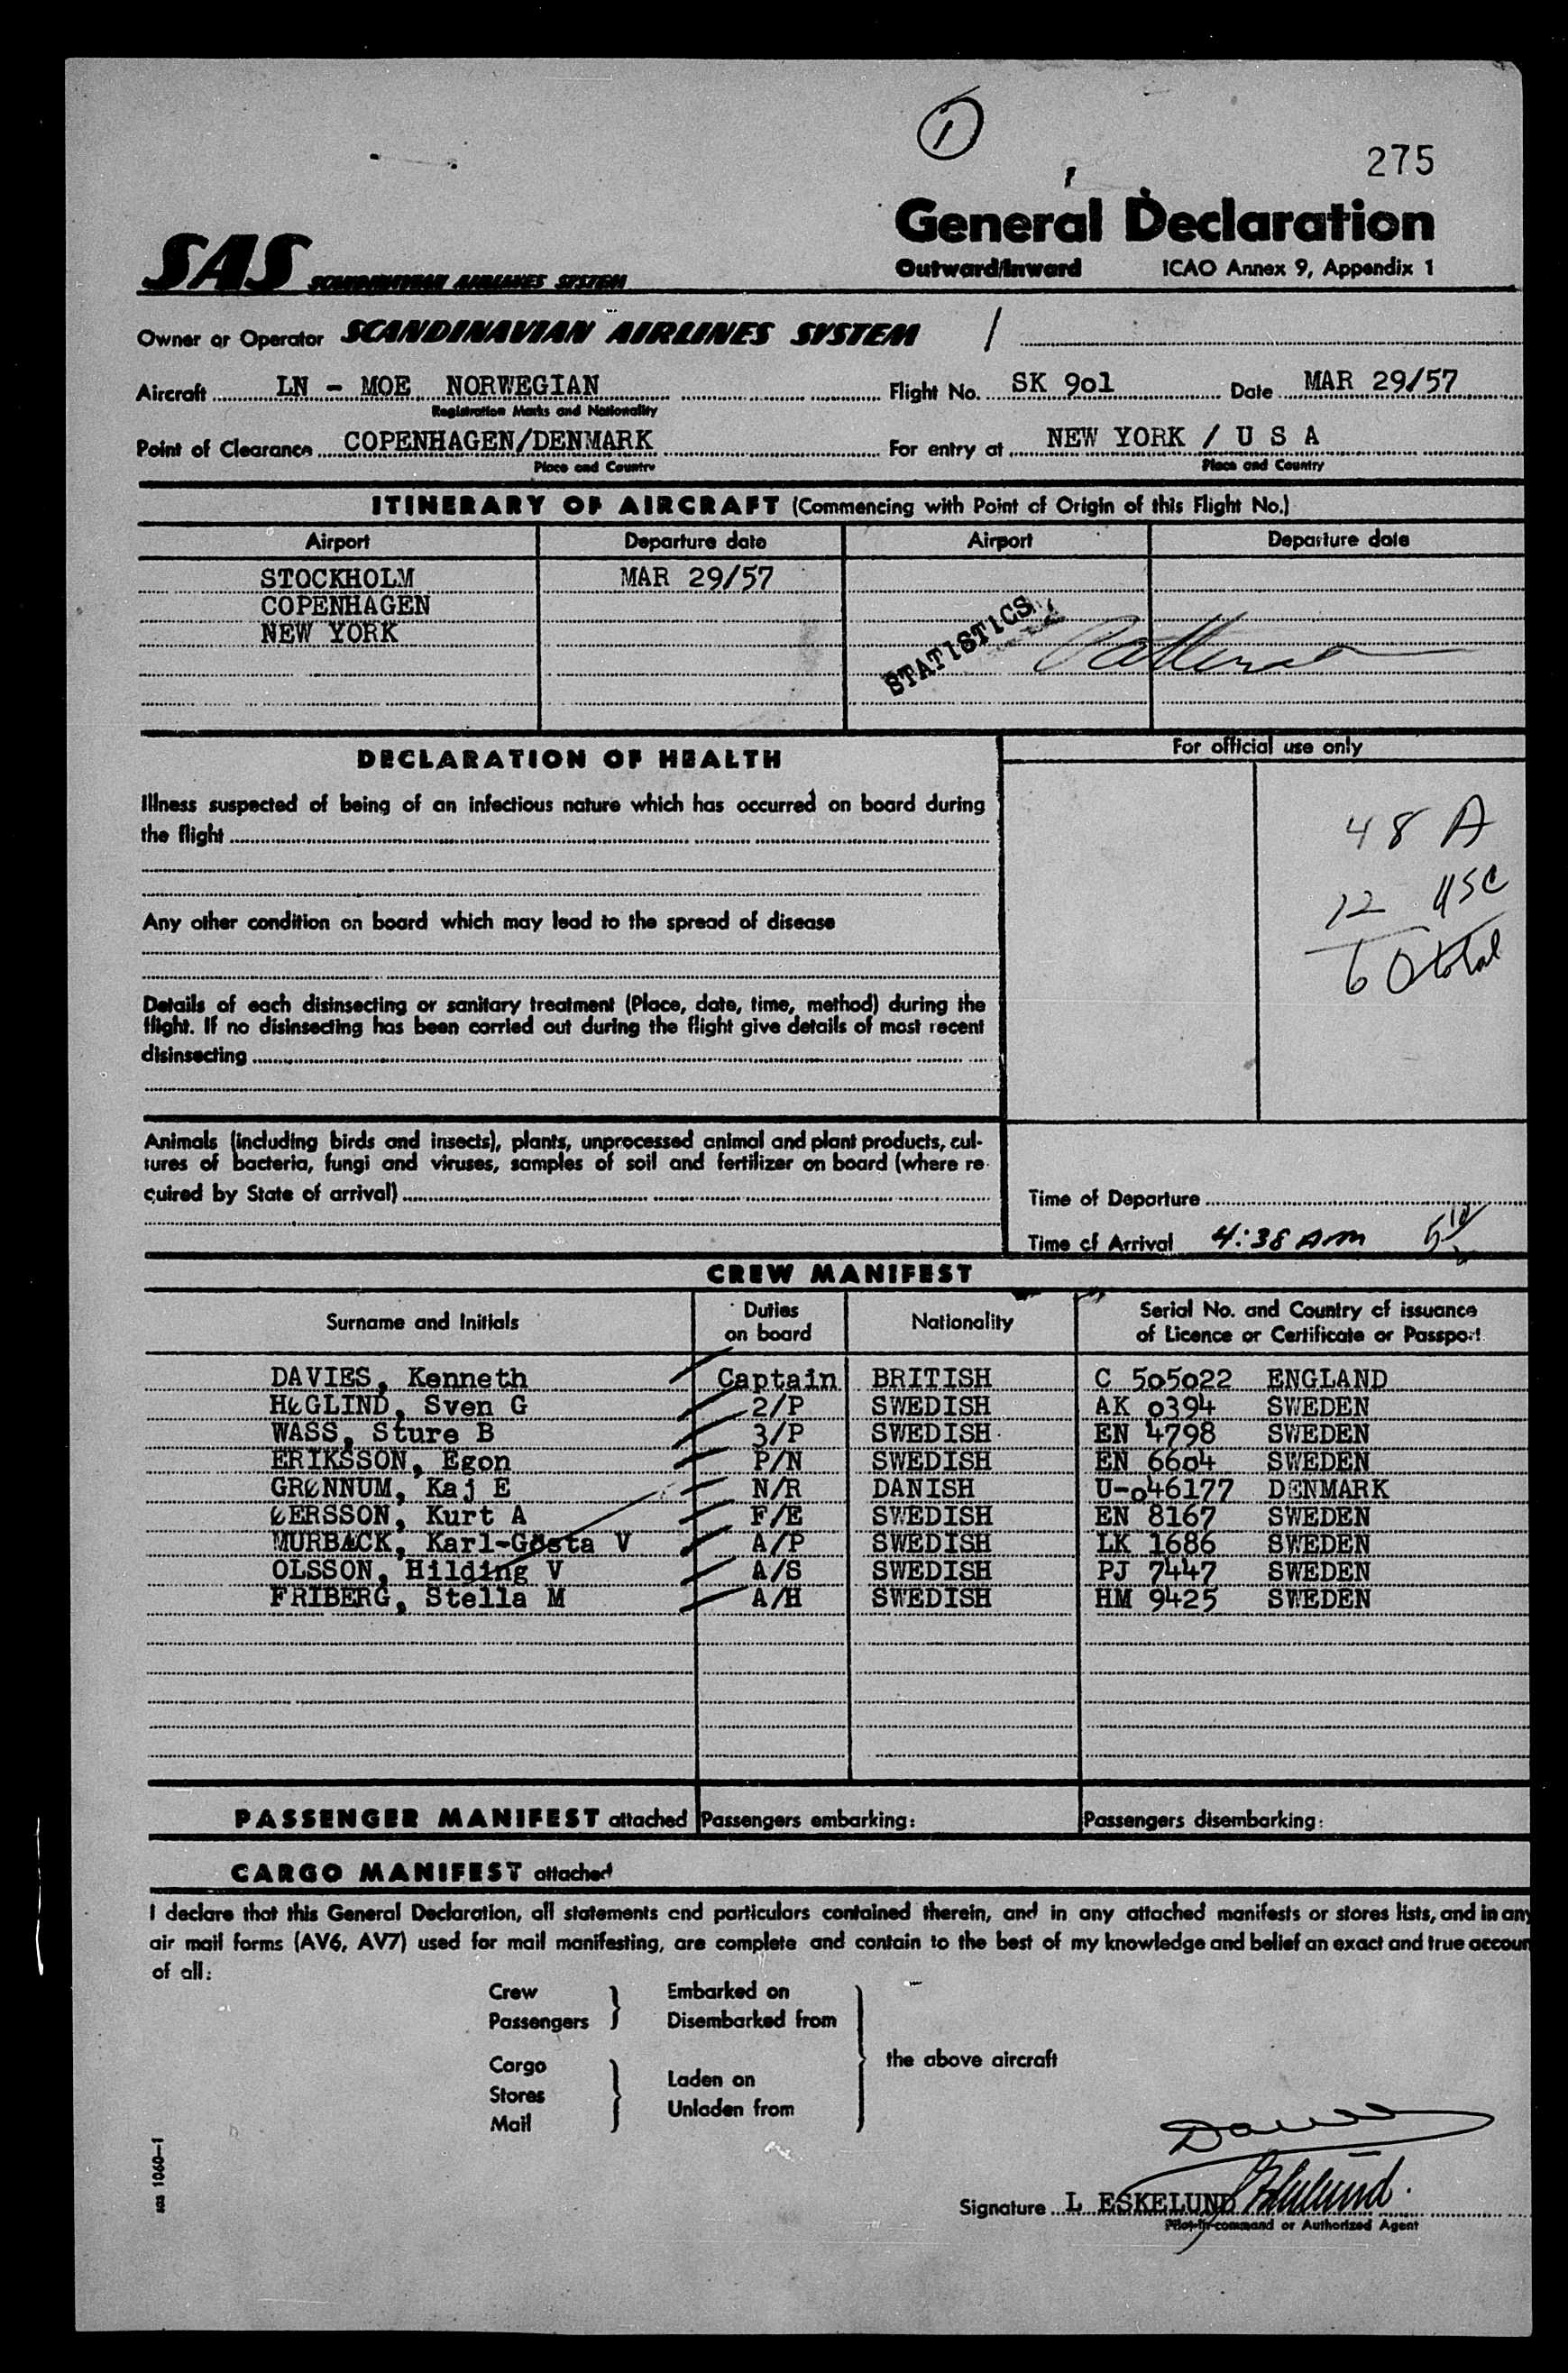 1
275
General Declaration
Outward/Inward ICAO Annex 9, Appendix 1
SAS SCANDINAVIAN AIRLINES SYSTEM
Owner or Operator SCANDINAVIAN AIRLINES SYSTEM /
Aircraft LN - MOE NORWEGIAN Flight No. SK 9o1 Date MAR 29/57
Registration Marks and Nationality
Point of Clearance COPENHAGEN/DENMARK For entry at NEW YORK / U S A
Place and Country Place and Country
ITINERARY OF AIRCRAFT (Commencing with Point of Origin of this Flight No.)
Airport Departure date Airport Departure date
STOCKHOLM MAR 29/57
COPENHAGEN
NEW YORK
STATISTICS
DECLARATION OF HEALTH
For official use only
Illness suspected of being of an infectious nature which has occurred on board during
the flight
48 A
12 USC
60 total
Any other condition on board which may lead to the spread of disease
Details of each disinsecting or sanitary treatment (Place, date, time, method) during the
flight. If no disinsecting has been carried out during the flight give details of most recent
disinsecting
Animals (including birds and insects), plants, unprocessed animal and plant products, cul-
tures of bacteria, fungi and viruses, samples of soil and fertilizer on board (where re-
quired by State of arrival)
Time of Departure
Time of Arrival 4:38 Am
CREW MANIFEST
Surname and Initials Duties on board Nationality Serial No. and Country of issuance of Licence or Certificate or Passport
DAVIES, Kenneth Captain BRITISH C 5o5o22 ENGLAND
HØGLIND, Sven G 2/P SWEDISH AK o394 SWEDEN
WASS, Sture B 3/P SWEDISH EN 4798 SWEDEN
ERIKSSON, Egon P/N SWEDISH EN 66o4 SWEDEN
GRØNNUM, Kaj E N/R DANISH U-o46177 DENMARK
ØERSSON, Kurt A F/E SWEDISH EN 8167 SWEDEN
MURBÆCK, Karl-Gösta V A/P SWEDISH LK 1686 SWEDEN
OLSSON, Hilding V A/S SWEDISH PJ 7447 SWEDEN
FRIBERG, Stella M A/H SWEDISH HM 9425 SWEDEN
PASSENGER MANIFEST attached Passengers embarking: Passengers disembarking:
CARGO MANIFEST attached
I declare that this General Declaration, all statements and particulars contained therein, and in any attached manifests or stores lists, and in any
air mail forms (AV6, AV7) used for mail manifesting, are complete and contain to the best of my knowledge and belief an exact and true accoun
of all:
Crew Embarked on
Passengers Disembarked from
the above aircraft
Cargo Laden on
Stores Unladen from
Mail
Signature L ESKELUND
Pilot-in-command or Authorized Agent
sas 1060—1